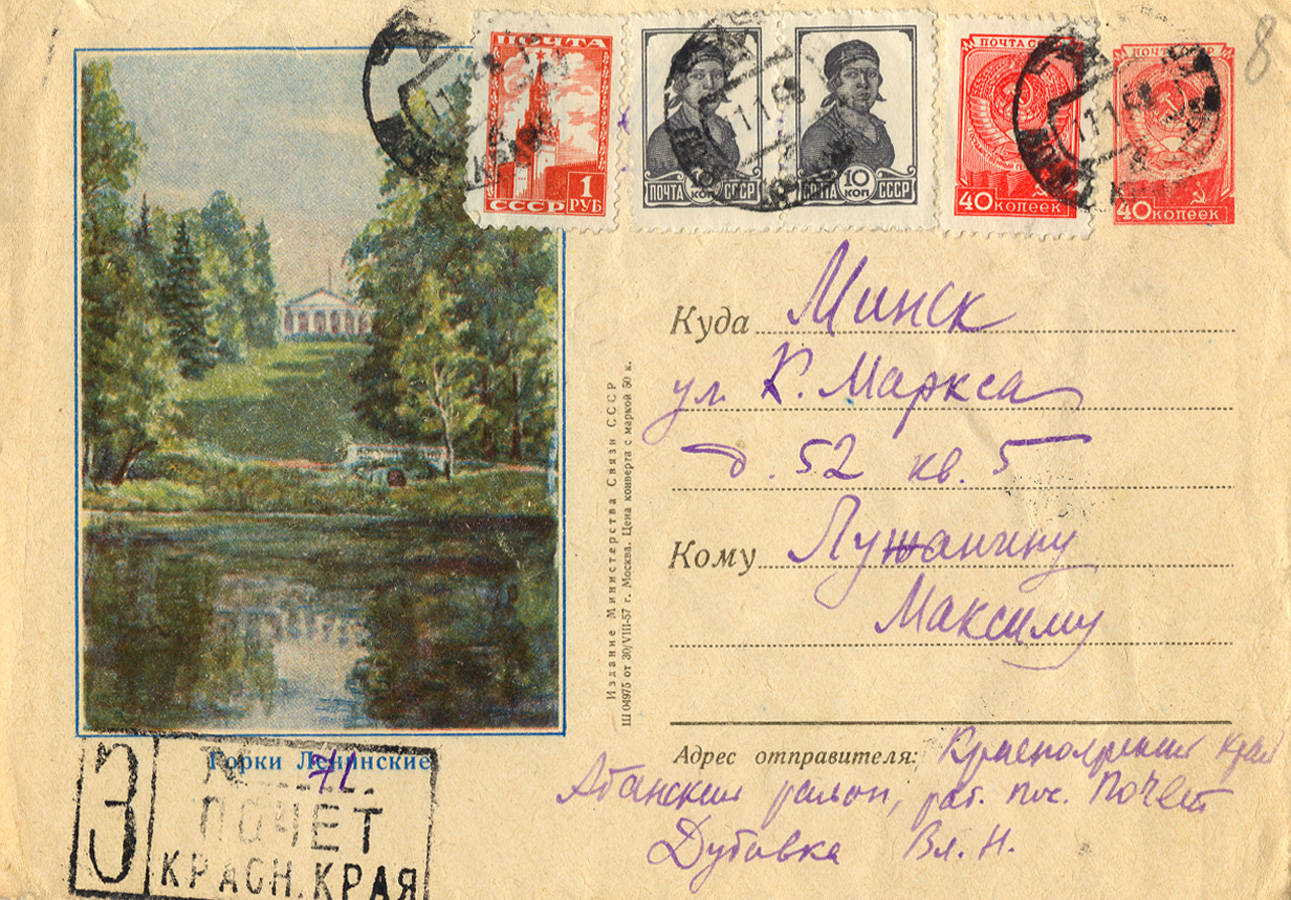 8
ПОЧТА
1
СССР РУБ
ПОЧТА КОП СССР
10
ПОЧТА КОП СССР
ПОЧТА СССР
40 КОПЕЕК
ПОЧТА СССР
40 КОПЕЕК
Куда Минск
ул. К. Маркса
д. 52 кв. 5
Кому Лужанину
Максиму
Издание Министерства Связи СССР
Ш 04975 от 30/VIII-57 г. Москва. Цена конверта с маркой 50 к.
Адрес отправителя: Красноярский край
Абанский район, раб. пос. Почет
Дубовка Вл. Н.
Горки Ленинские
З
№ 71
ПОЧЕТ
КРАСН. КРАЯ